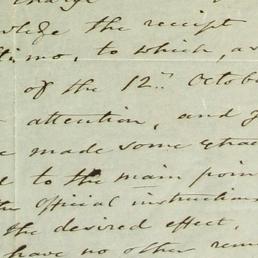 charge
wledge the receipt
ltimo, to which, as
of the 12th Octobe
attention, and I
e made some extrac
d to the main poin
the Official instructions
the desired effect,
have no other rem